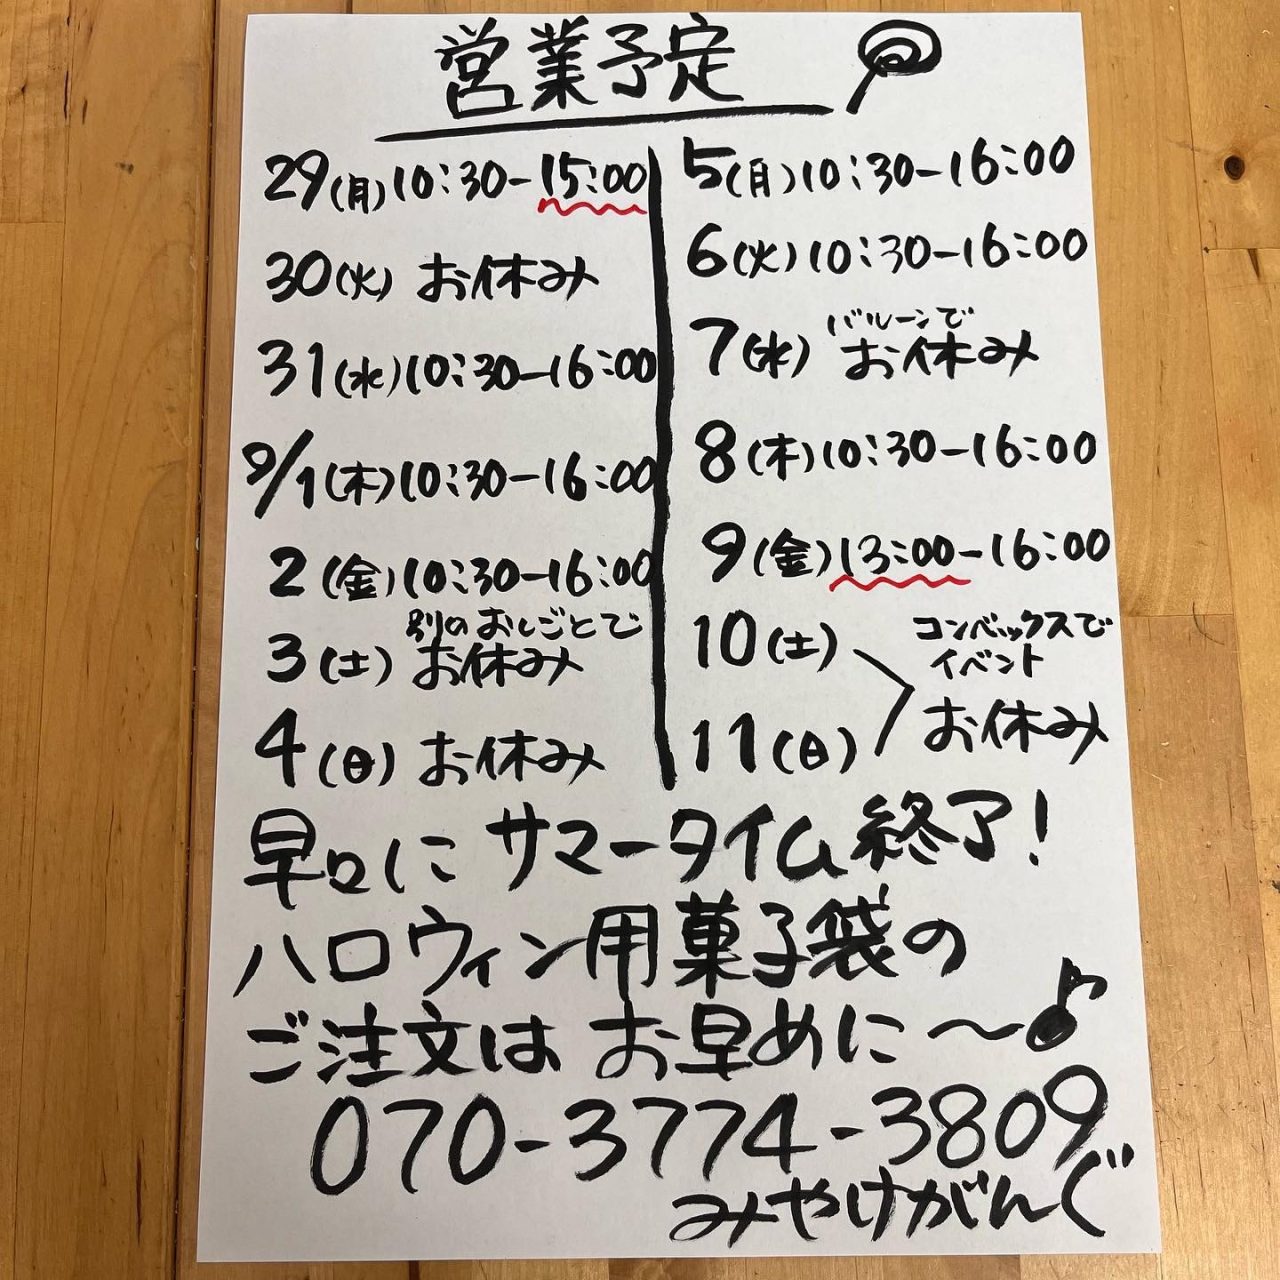 営業予定
29(月)10:30-15:00
30(火)お休み
31(水)10:30-16:00
9/1(木)10:30-16:00
2(金)10:30-16:00
別のおしごとで
3(土)お休み
4(日)お休み
5(月)10:30-16:00
6(火)10:30-16:00
バルーンで
7(水)お休み
8(木)10:30-16:00
9(金)13:00-16:00
10(土)
11(日)
コンベックスで
イベント
お休み
早口にサマータイム終了!
ハロウィン用菓子袋の
ご注文はお早めに〜♪
070-3774-3809
みやけがんぐ